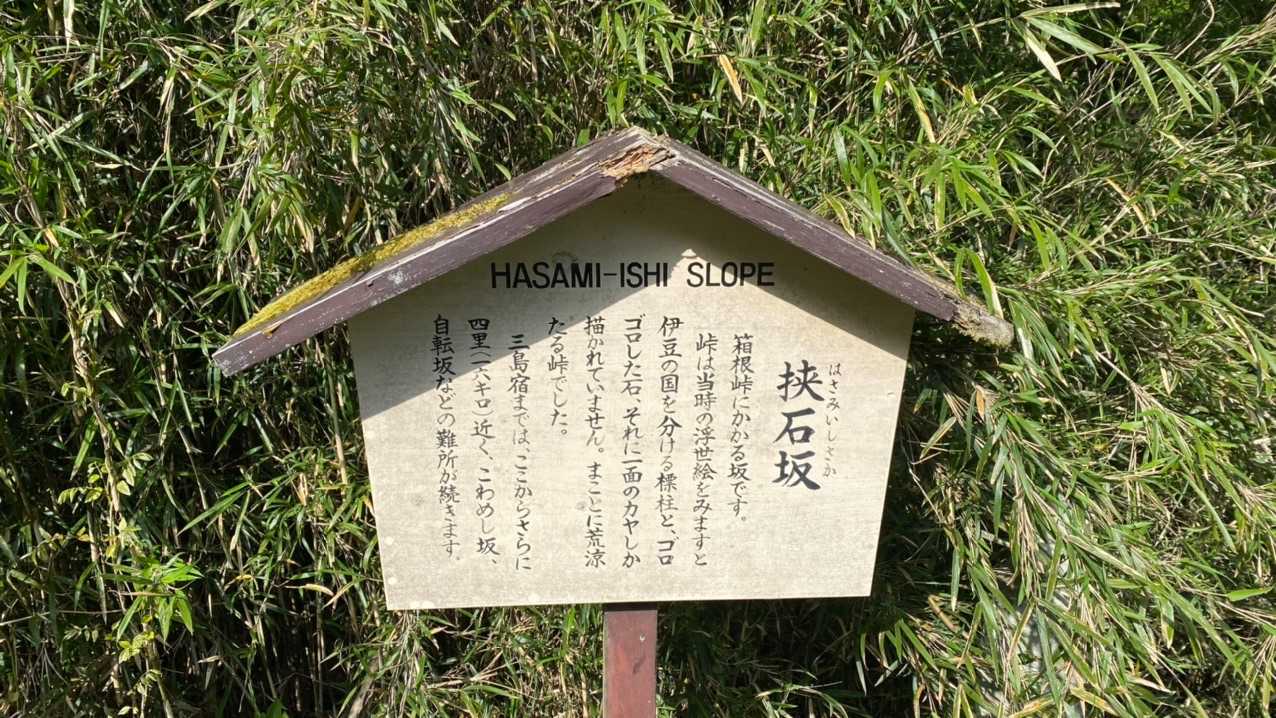 HASAMI-ISHI SLOPE
はさみいしさか
挟石坂
箱根峠にかかる坂です。
峠は当時の浮世絵をみますと
伊豆の国を分ける標柱と、ゴロ
ゴロした石、それに一面のカヤしか
描かれていません。まことに荒涼
たる峠でした。
三島宿までは、ここからさらに
四里(一六キロ)近く、こわめし坂、
自転坂などの難所が続きます。